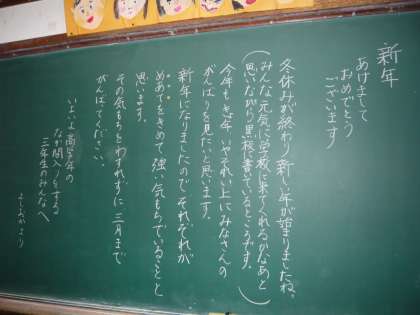 新年
あけまして
おめでとう
ございます
冬休みが終わり、新しい年が始まりましたね。
(みんな元気に学校に来てくれるかなあと
思いながら黒板書いているところです。)
今年も去年以上にみなさんの
がんばりを見たいと思います。
新年になりましたので、それぞれが
めあてをきめて強い気もちでいることと
思います。
その気もちをわすれずに三月まで
がんばてください。
いよいよ高学年の
なか間入りをする
三年生のみんなへ
よしおかより